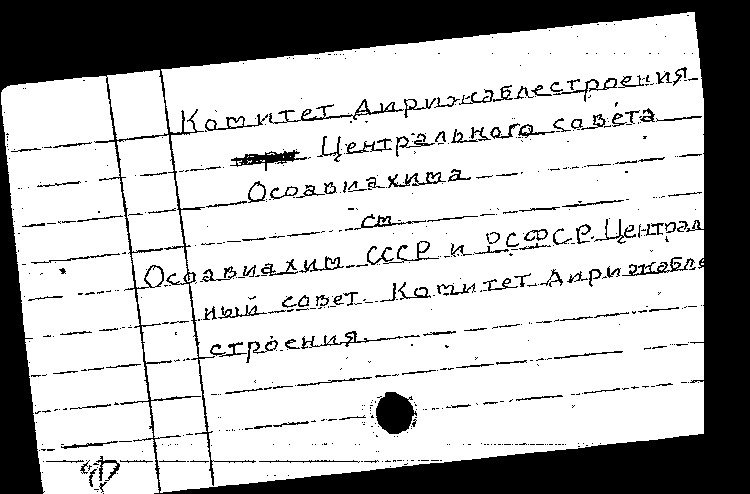 Комитет Дирижаблестроения
Центрального совета
Осоавиахима
см.
Осоавиахим СССР и РСФСР. Централ
ный совет. Комитет Дирижабле
строения.